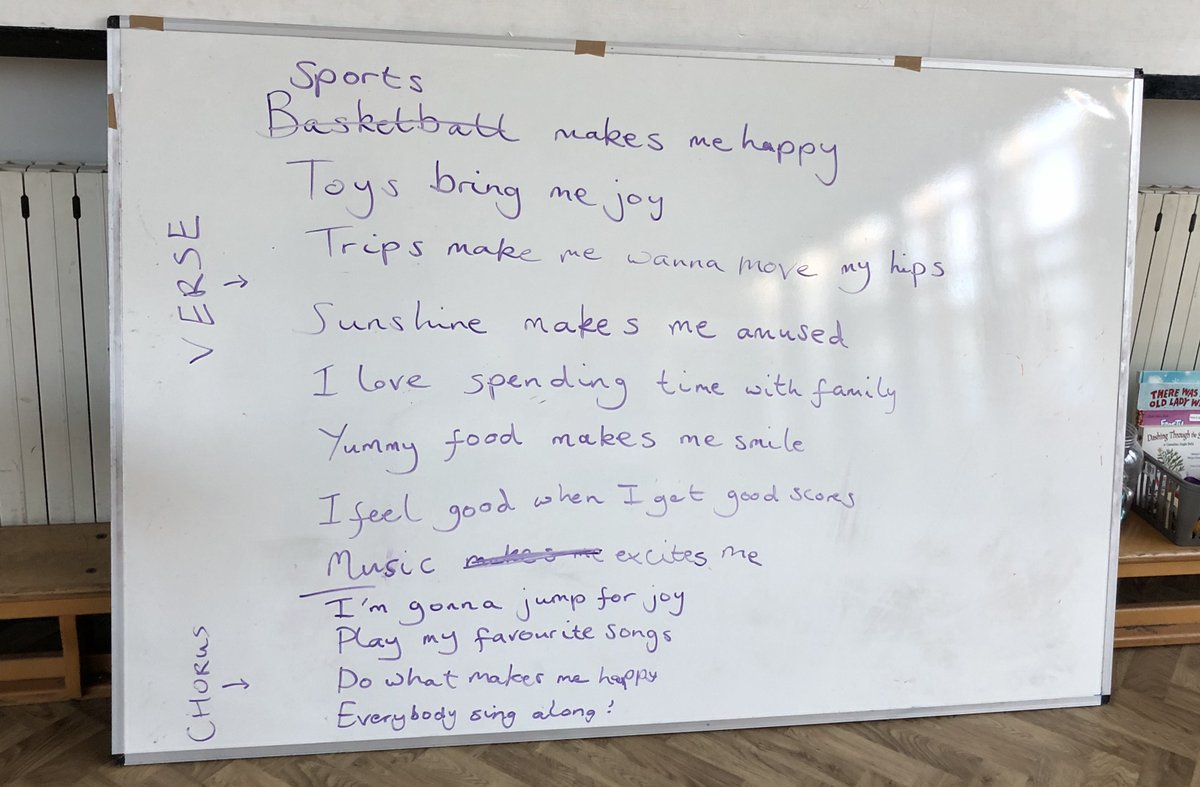 Sports
Basketball makes me happy
Toys bring me joy
Trips make me wanna move my hips
Sunshine makes me amused
I love spending time with family
Yummy food makes me smile
I feel good when I get good scores
Music makes me excites me
I'm gonna jump for joy
Play my favourite songs
Do what makes me happy
Everybody sing along!
VERSE →
CHORUS →
THERE WAS
OLD LADY W
Dashing Through the S